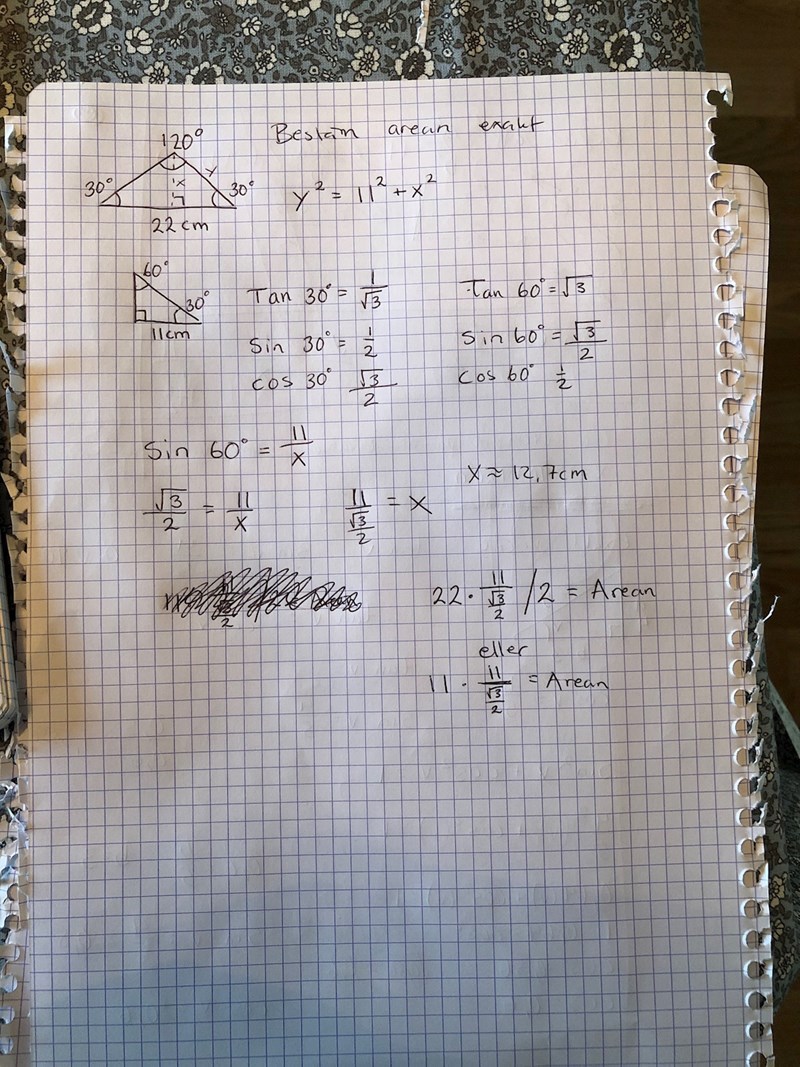 Bestäm arean exakt
120°
30° x y 30°
22 cm
y² = 11² + x²
60°
30°
11cm
Tan 30° = 1/√3
Tan 60° = √3
Sin 30° = 1/2
Sin 60° = √3/2
cos 30° √3/2
cos 60° 1/2
Sin 60° = 11/x
x ≈ 12,7cm
√3/2 = 11/x
11/(√3/2) = x
22 · 11/(√3/2) /2 = Arean
eller
11 · 11/(√3/2) = Arean